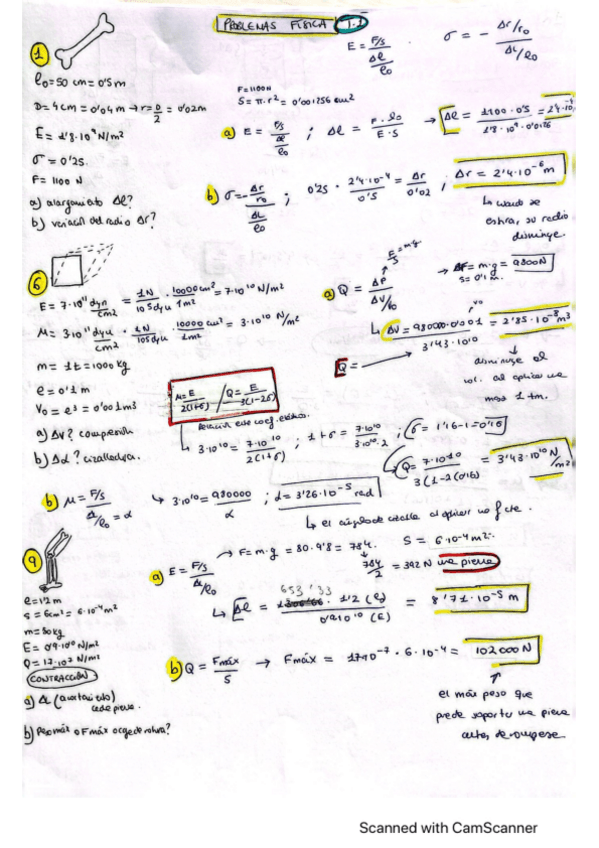 PROBLEMAS FÍSICA 1.1
E = F/S / Δl/l₀
σ = - Δr/r₀ / Δl/l₀
1
l₀ = 50 cm = 0'5 m
D = 4 cm = 0'04 m → r = D/2 = 0'02m
E = 1'8·10⁹ N/m²
σ = 0'25
F = 1100 N
a) alargamiento Δl?
b) variación del radio Δr?
F = 1100 N
S = π·r² = 0'001256 cm²
a) E = F/S / Δl/l₀ ; Δl = F·l₀ / E·S → Δl = 1100·0'5
b) σ = - Δr/r₀ / Δl/l₀ ; 0'25 · 2'4·10⁻⁴ / 0'5 = Δr / 0'02 ; Δr = 2'4·10⁻⁶ m
cuando se
estira, su radio
disminuye.
6
E = 7·10¹¹ dyn/cm² = 1N/10⁵dyn · 10000cm²/1m² = 7·10¹⁰ N/m²
μ = 3·10¹¹ dyn/cm² · 1N/10⁵dyn · 10000cm²/1m² = 3·10¹⁰ N/m²
m = 1t = 1000 kg
e = 0'1 m
V₀ = e³ = 0'001 m³
a) ΔV? compresión
b) Δα? cizalladura.
a) Q = ΔP / ΔV/V₀
F/S = m·g
→ ΔF = m·g = 9800N
S = 0'1 m
V₀
↳ ΔV = 980000·0'001 / 3'43·10¹⁰ = 2'85·10⁻⁸ m³
Q =
disminuye el
vol. al aplicar una
masa 1 tm.
μ = E / 2(1+σ) / Q = E / 3(1-2σ)
↳ 3·10¹⁰ = 7·10¹⁰ / 2(1+σ) ; 1+σ = 7·10¹⁰ / 3·10¹⁰·2 ; σ = 1'16-1 = 0'16
Q = 7·10¹⁰ / 3(1-2(0'16)) = 3'43·10¹⁰ N/m²
b) μ = F/S / Δ/l₀ = α
↳ 3·10¹⁰ = 980000 / α ; α = 3'26·10⁻⁵ rad
↳ el ángulo de cizalla al aplicar una f cte.
9
l = 1'2 m
S = 6cm² = 6·10⁻⁴ m²
m = 80 kg
E = 0'9·10¹⁰ N/m²
Q = 17·10⁷ N/m²
CONTRACCIÓN
a) Δl (acortamiento)
cada pierna.
b) Peso máx o F máx
a) E = F/S / Δl/l₀
→ F = m·g = 80·9'8 = 784.
S = 6·10⁻⁴ m².
784/2 = 392 N una pierna
653'33
↳ Δl = · 1'2 (l₀) / 0'9·10¹⁰ (E) = 8'71·10⁻⁵ m
b) Q = Fmáx / S → Fmáx = 17·10⁻⁷ · 6·10⁻⁴ = 102000 N
el máx peso que
puede soportar una pierna
antes de romperse.
Scanned with CamScanner